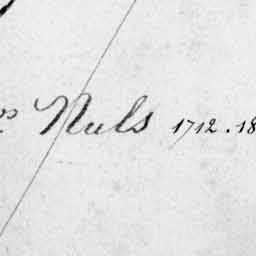 Nuls 1712.18